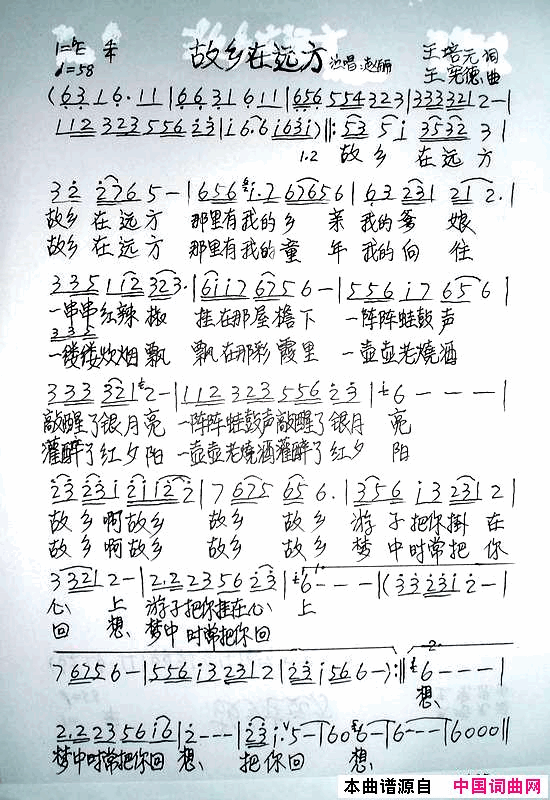 1=♭E 4/4 故乡在远方 演唱:赵丽 王培元词
♩=58 王宪德曲
(6 3 1 6·1 1 | 6 6 3 1 6 1 1 | 6 5 6 5 5 4 3 2 3 | 3 3 3 3 2 1 2 - |
1 1 2 3 2 3 5 5 6 2 3 | i 6·6 i 6 3 i ) ‖: 5 3 5 i 3 5 3 2 3 1 |
1.2 故乡 在远方
3 2 2 7 6 5 - | 6 5 6 i·7 6 7 6 5 6 | 6 3 2 3 1 2 1 2· |
故乡 在远方 那里有我的乡 亲 我的爹 娘
故乡 在远方 那里有我的童 年 我的向 往
3 3 5 1 i 2 3 2 3· | 6 i i 7 6 7 5 6 - | 5 5 6 i 7 6 5 6 |
一串串红辣 椒 挂在那屋檐下 一阵阵蛙鼓声
3 3 5
一缕缕炊烟飘 飘在那彩霞里 一壶壶老烧酒
3 3 3 3 2 1 2 - | 1 1 2 3 2 3 5 5 6 2 3 | 6 - - - |
敲醒了银月亮 一阵阵蛙鼓声敲醒了银月 亮
灌醉了红夕阳 一壶壶老烧酒灌醉了红夕 阳
2 3 2 3 i 2 i i 2 2 | 7 6 7 5 6 5 6· | 3 5 6 i 3 2 3 1 2 |
故乡啊故乡 故乡 故乡 游子把你掛在
故乡啊故乡 故乡 故乡 梦中时常把你
3 3 2 1 2 - | 2·2 2 3 5 6 2 3 | 6 - - - | (3 3 2 3 i 2 - |
心 上 游子把你挂在心 上
回 想 梦中时常把你回
7 6 7 5 6 - | 5 5 6 i 3 2 3 1 2 | 2 3 i 5 6 6 - ) :‖ 6 - - - |
想
2·2 2 3 5 6 i 6 | 2 - - - | 2 3 i· 5 - | 6 0 6 - | 6 - - - | 6 0 0 0 ‖
梦中时常把你回 想 把你回 想
本曲谱源自 中国词曲网